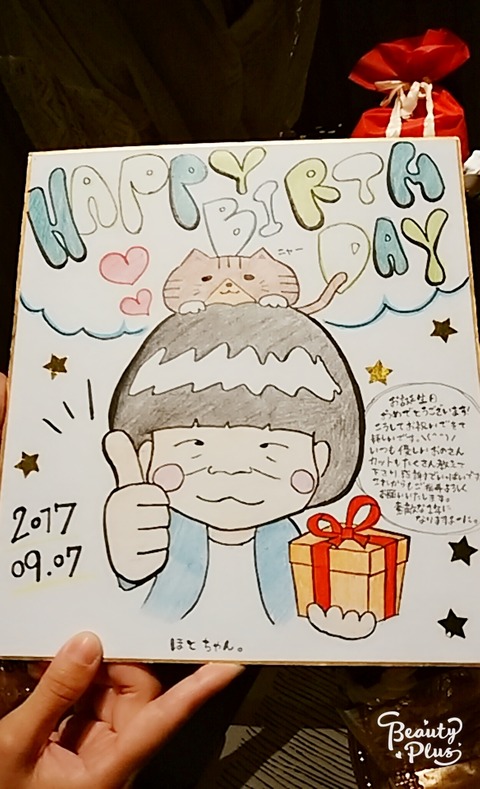 HAPPY
BIRTH
DAY
ニャー
お誕生日
おめでとうございます!
こうしてお祝いできて
嬉しいです。\(^^)/
いつも優しいおのさん
カットもたくさん教えて
下さり感謝でいっぱいです
これからもご指導よろしく
お願いいたします。
素敵な1年に
なりますよーに。
2017
09.07
ほとちゃん。
Beauty
Plus